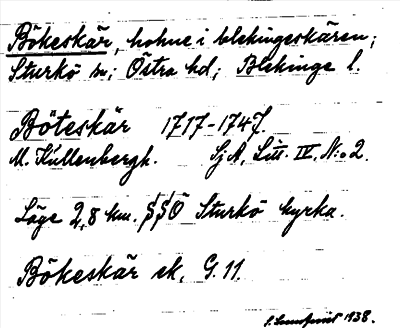 Bökeskär, holme i blekingeskären;
Sturkö sn; Östra hd; Blekinge l.
Böteskär 1717-1747.
M. Kullenbergh. SjA, Litt. IV. N:o 2.
Läge 2,8 km. SSO Sturkö kyrka.
Bökeskär ek. G. 11.
1938.